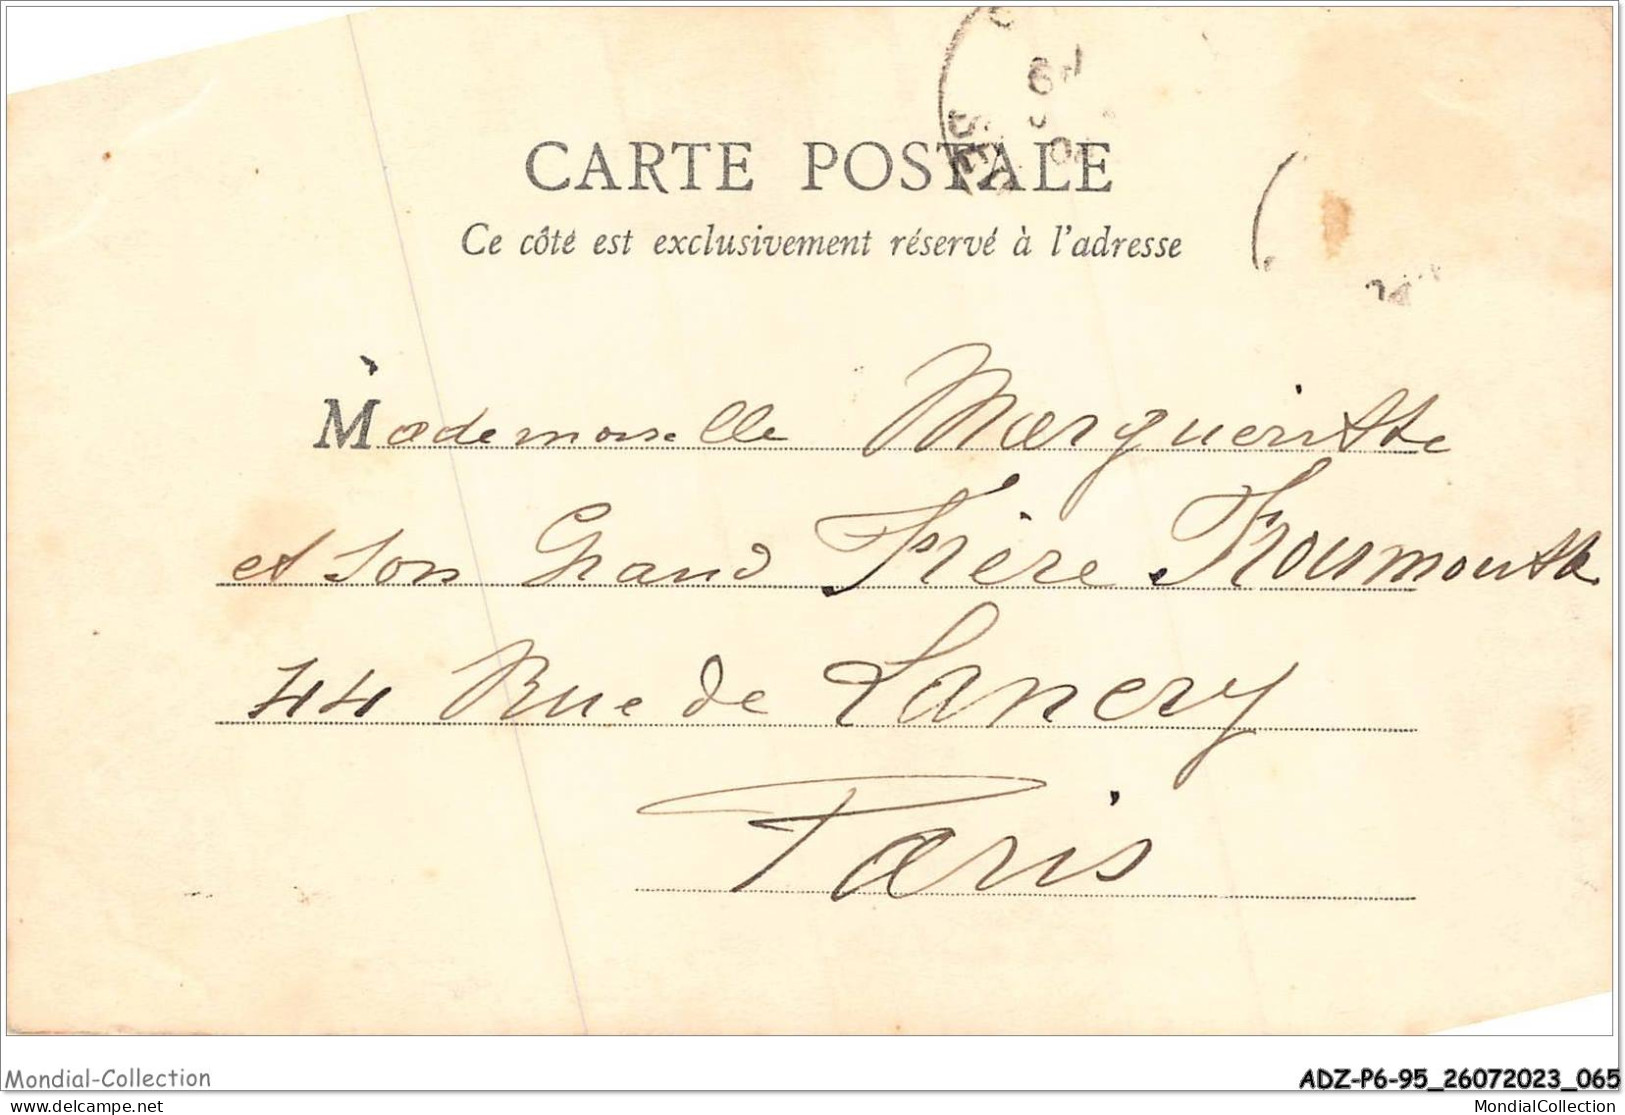 CARTE POSTALE
Ce côté est exclusivement réservé à l'adresse
À
Mademoiselle Marguerittte
et son Grand Frère
44 Rue de Lancry
Paris
Mondial-Collection
ADZ-P6-95_26072023_065
www.delcampe.net
MondialCollection